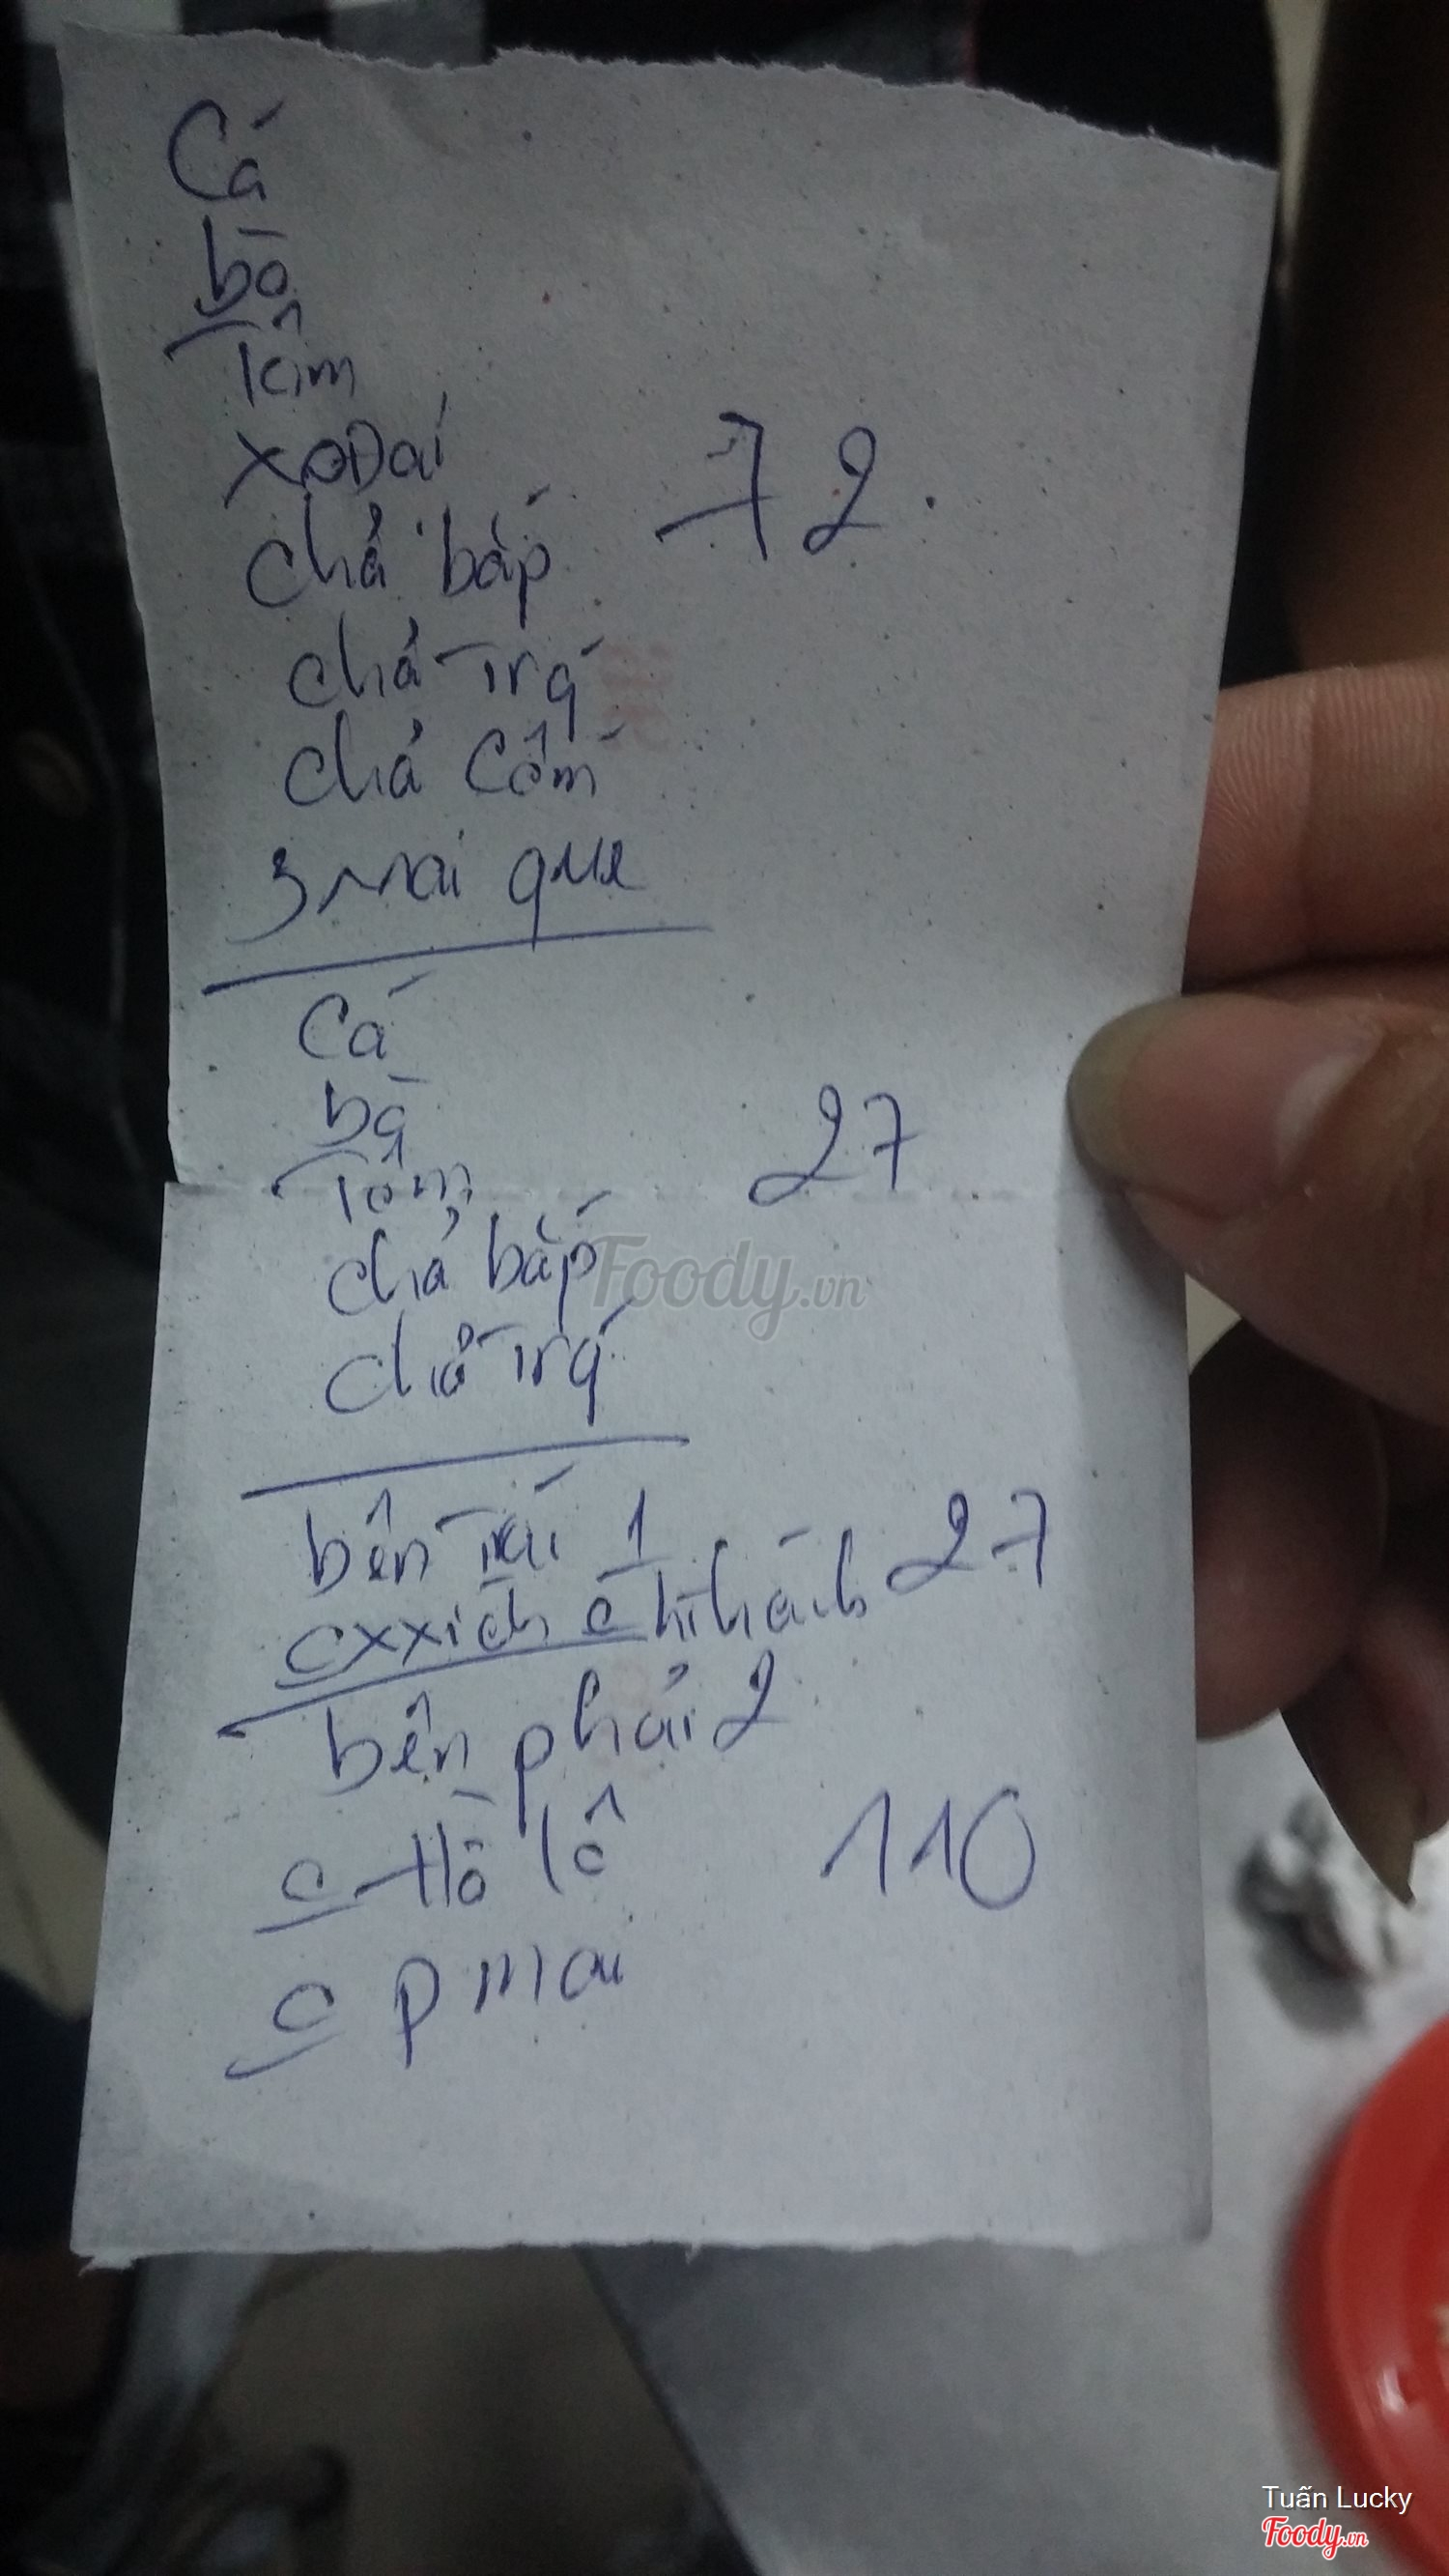 Cá
bò
Tôm
xoDai
72.
chả bắp
chả Trứ
chả Cốm
3 mai que
Cá
bò
27
Tôm
chả bắp
chả Trứ
Foody.vn
bên Trái 1
27
cxxich
bên phải 2
Hồ lô
110
c p mai
Tuấn Lucky
Foody.vn